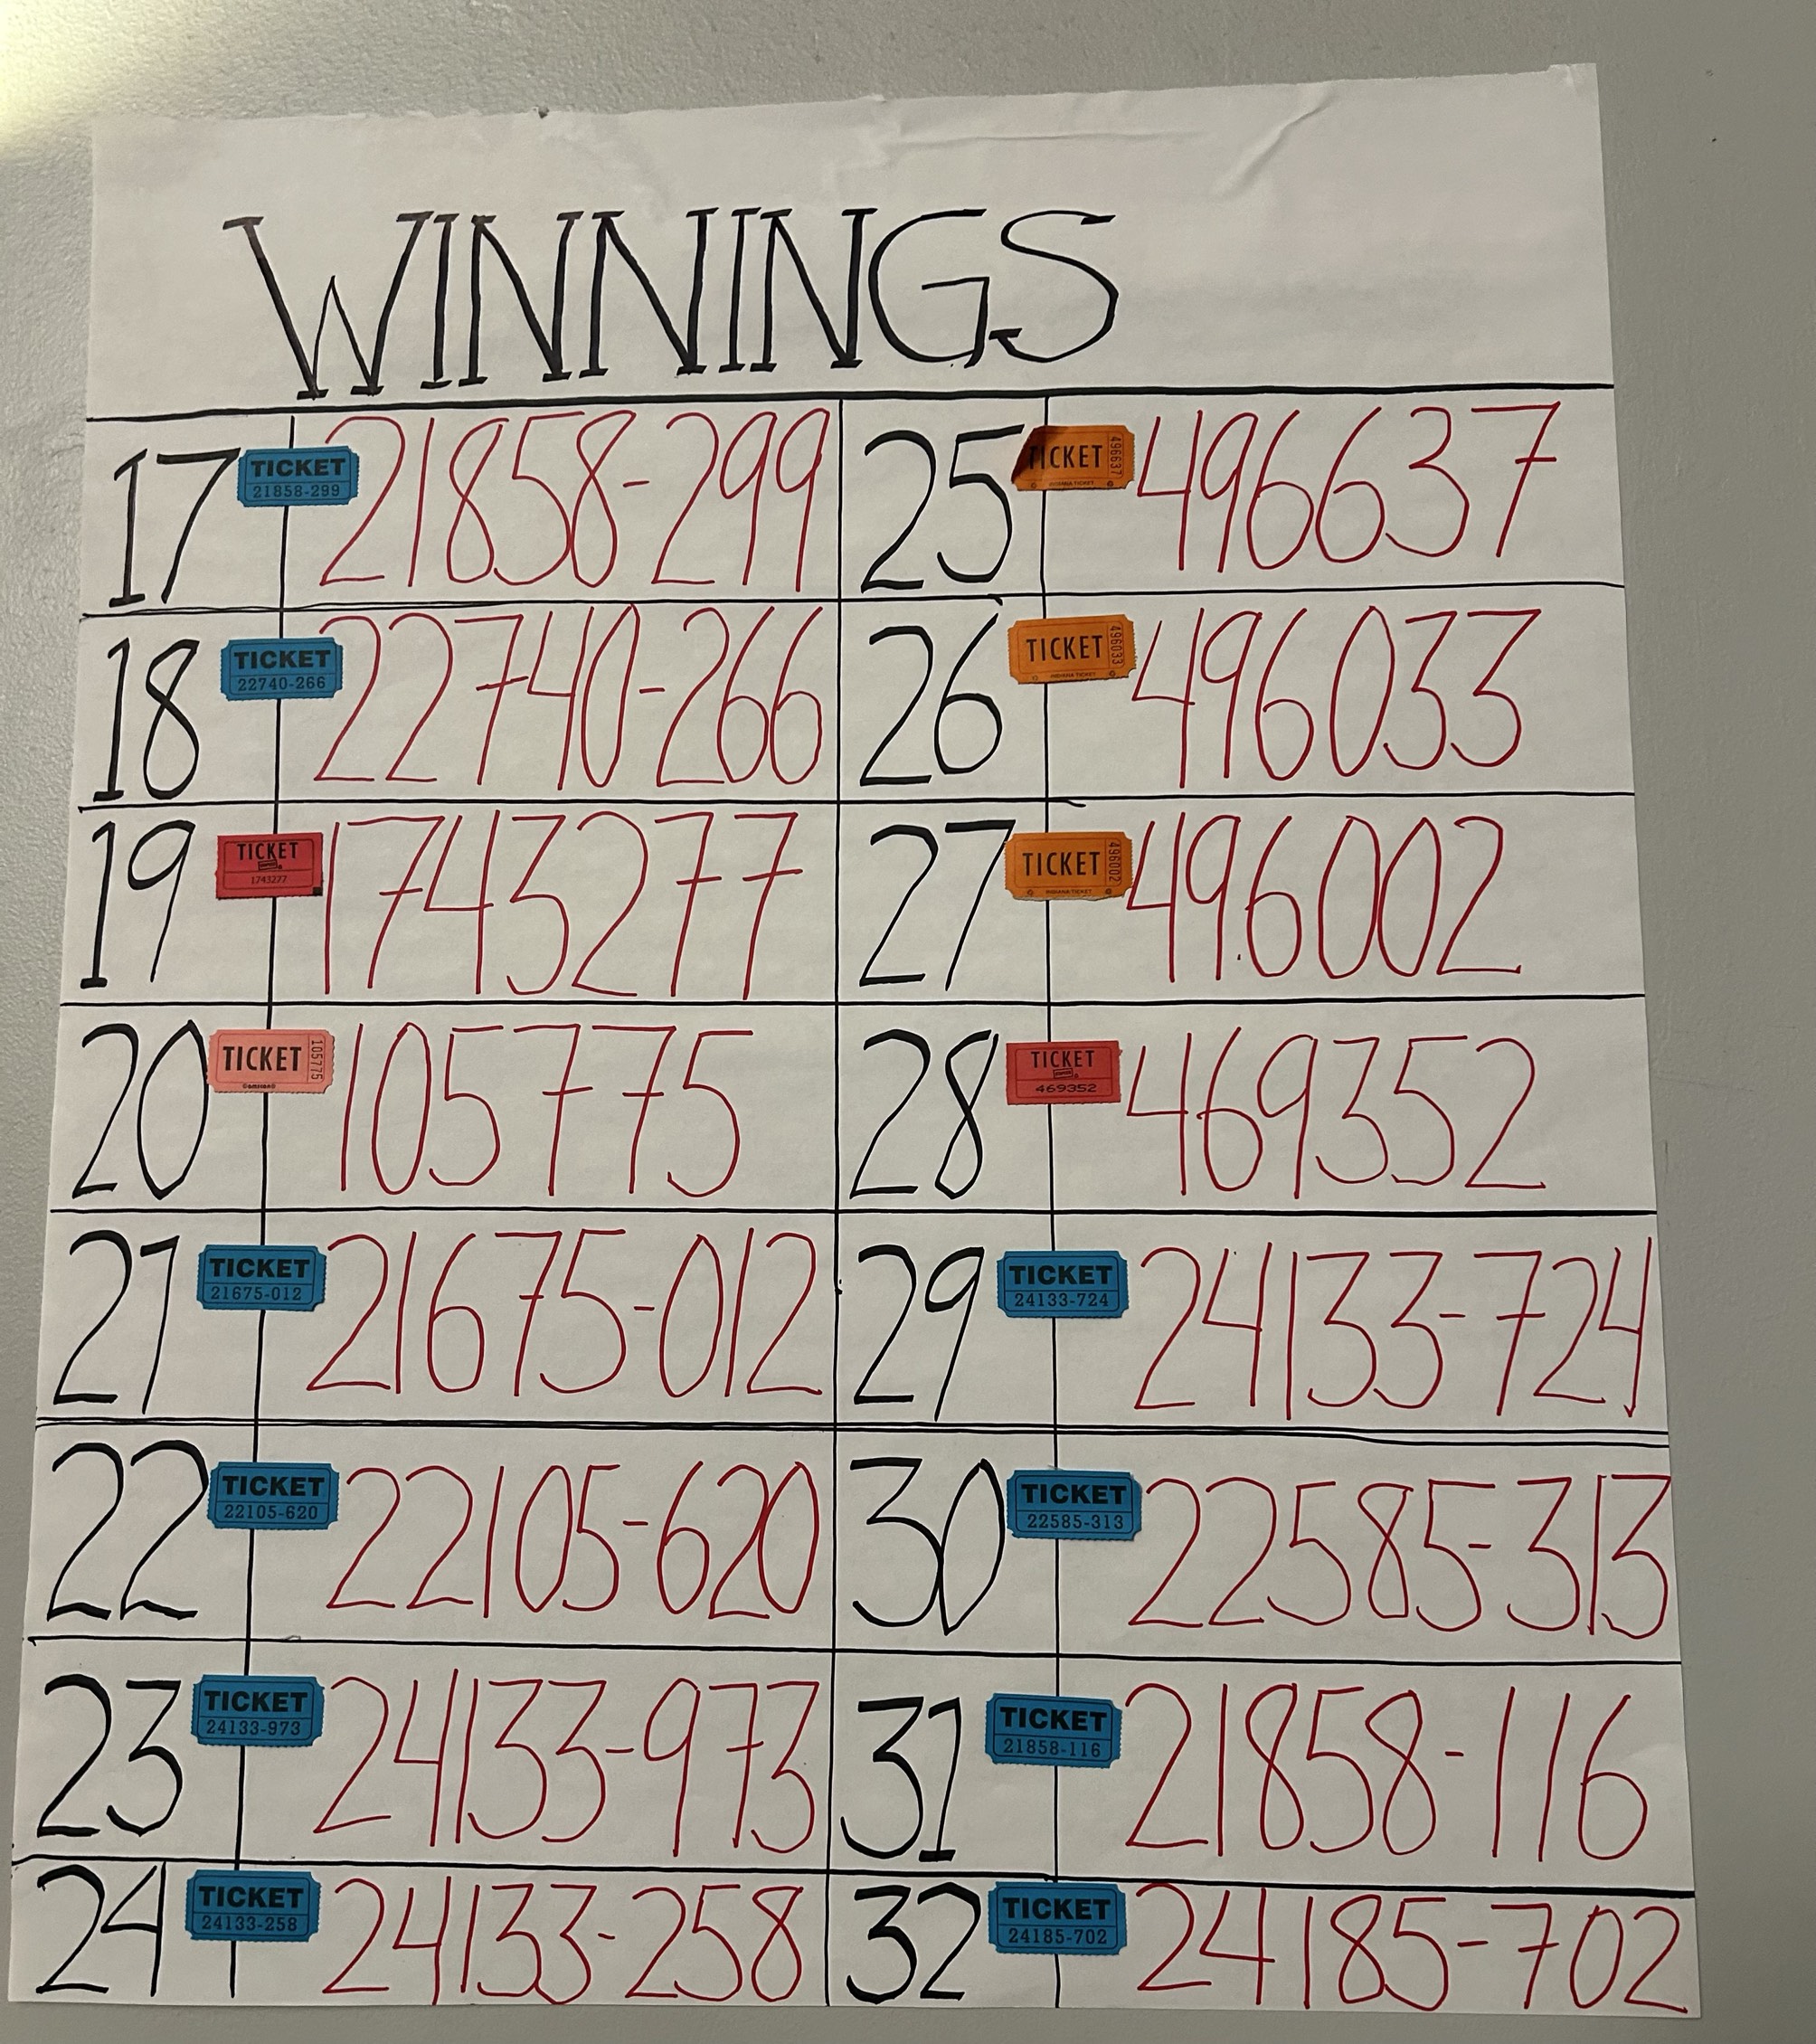 WINNINGS
17 TICKET 21858-299 21858-299 25 TICKET 496637 INDIANA TICKET 496637
18 TICKET 22740-266 22740-266 26 TICKET 496033 INDIANA TICKET 496033
19 TICKET 1743277 1743277 27 TICKET 496002 INDIANA TICKET 496002
20 TICKET 105775 105775 28 TICKET 469352 469352
21 TICKET 21675-012 21675-012 29 TICKET 24133-724 24133-724
22 TICKET 22105-620 22105-620 30 TICKET 22585-313 22585-313
23 TICKET 24133-973 24133-973 31 TICKET 21858-116 21858-116
24 TICKET 24133-258 24133-258 32 TICKET 24185-702 24185-702